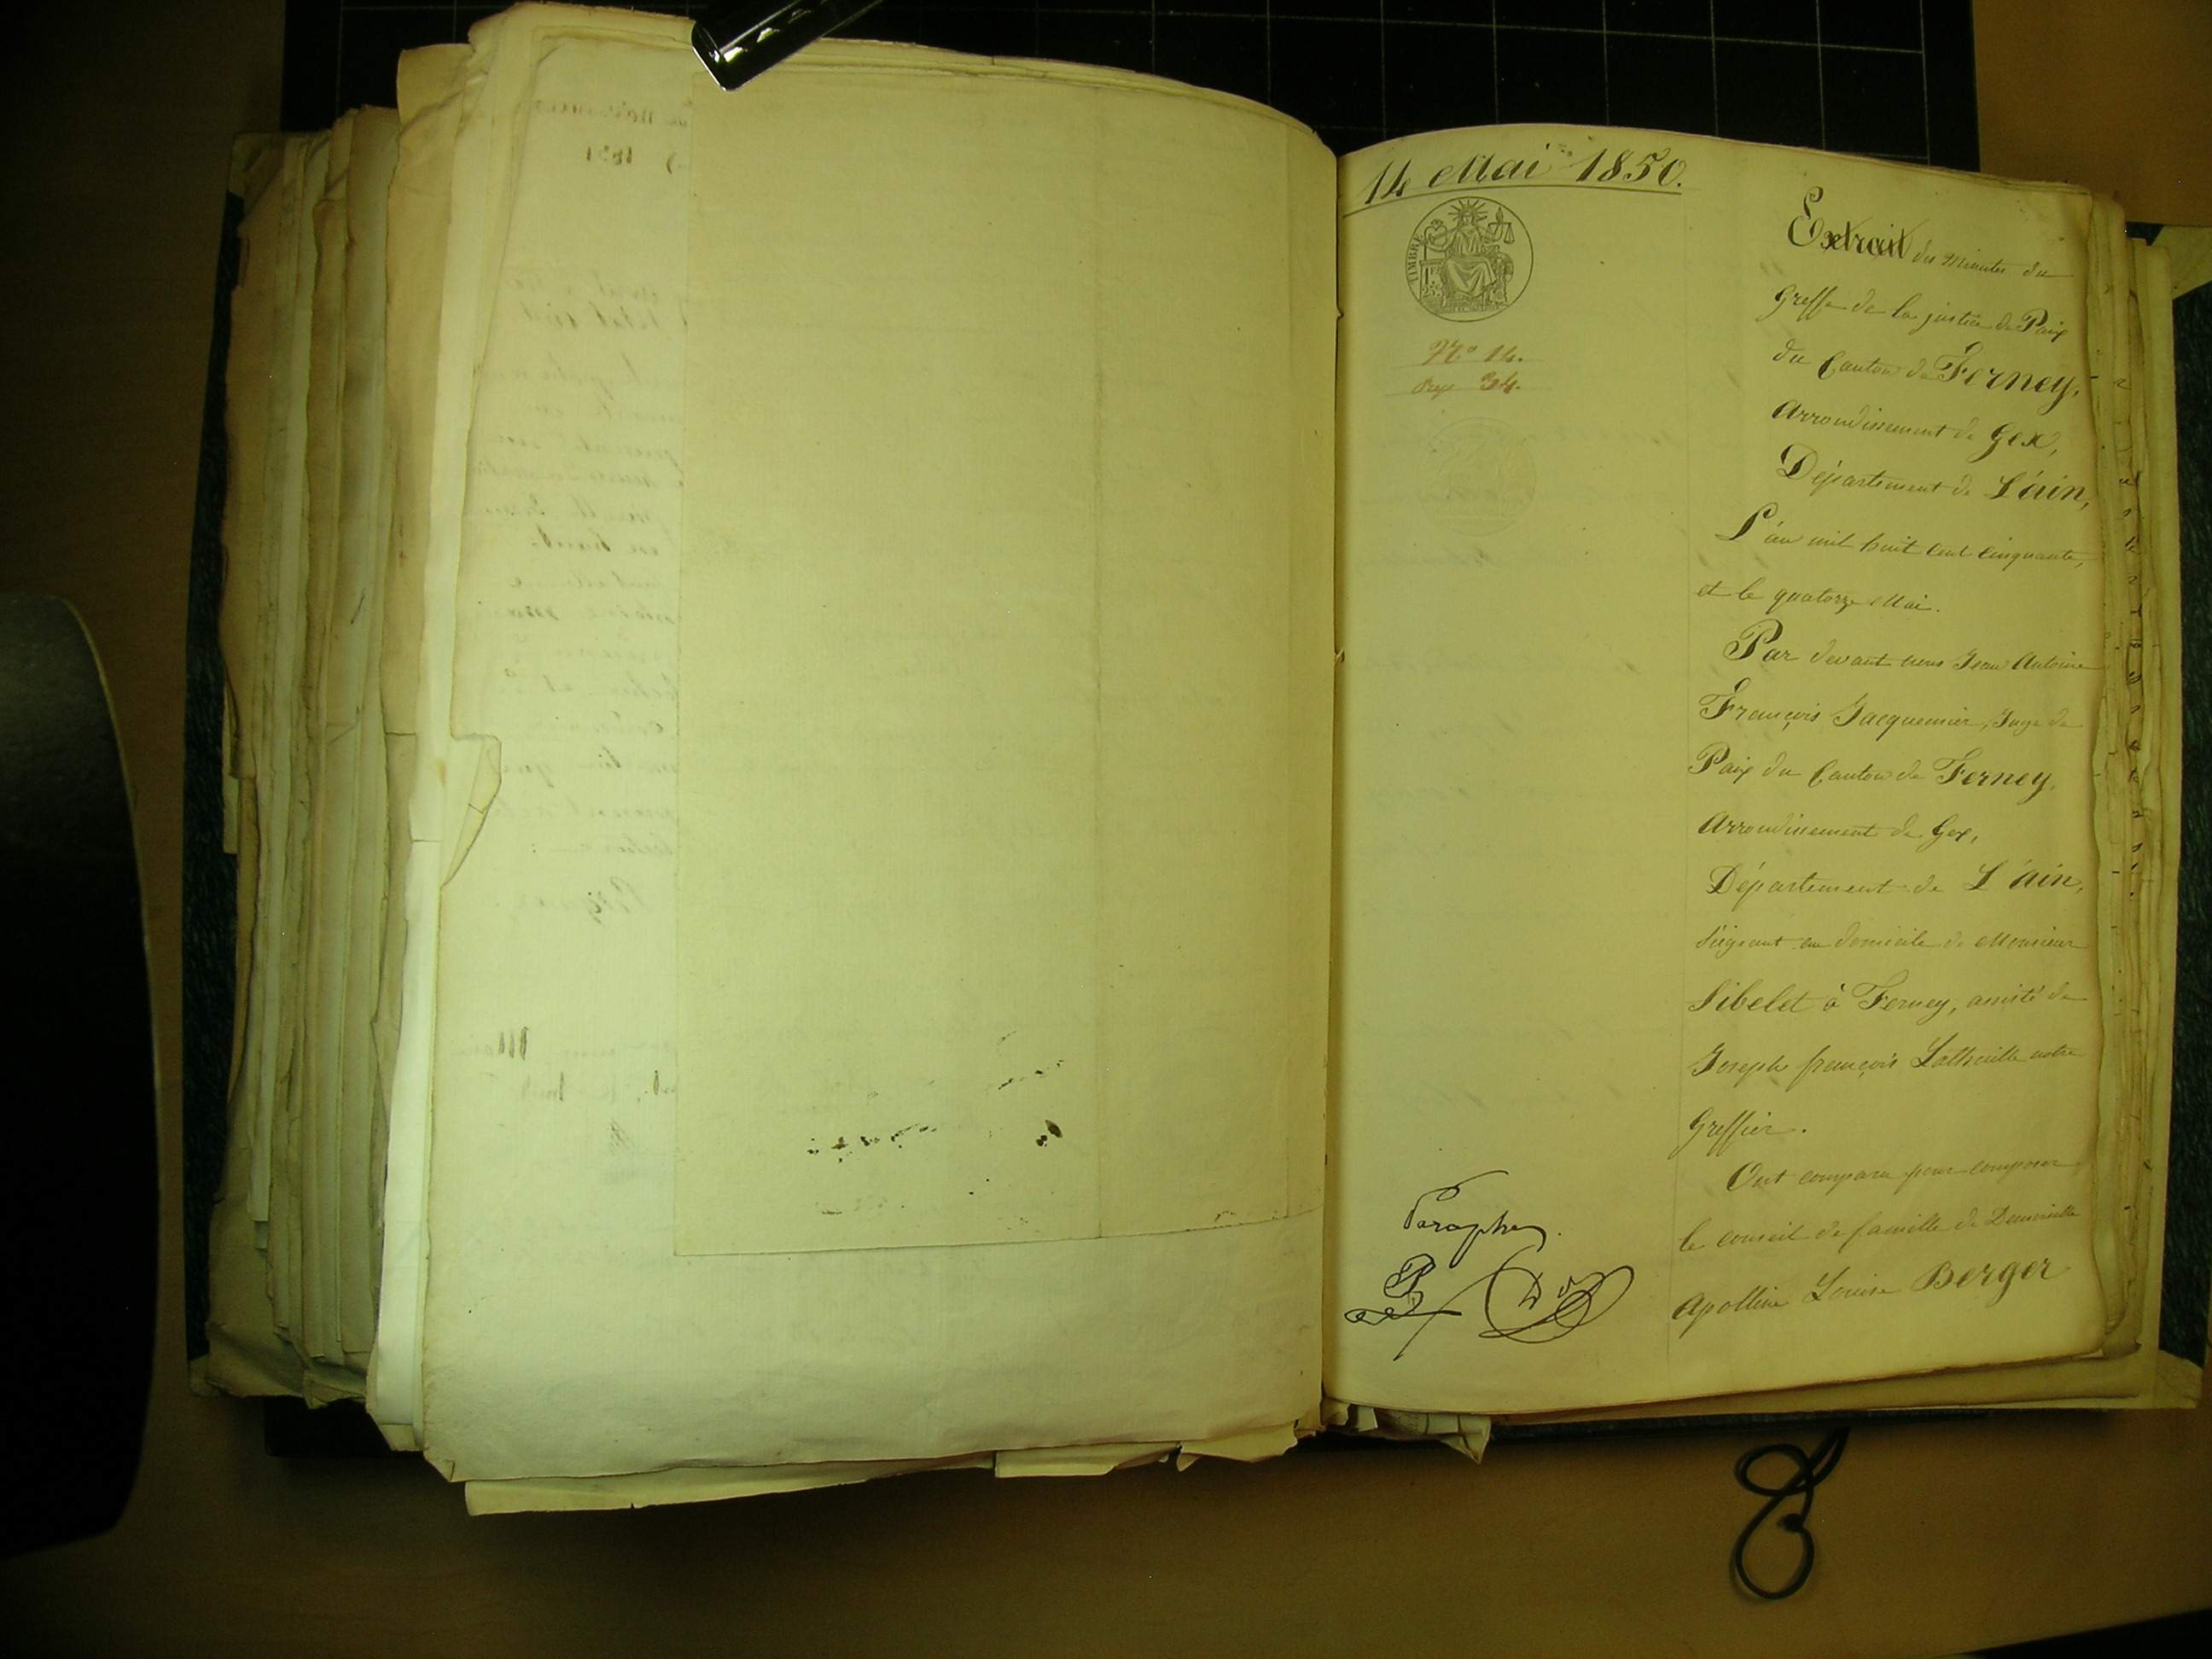 14 Mai 1850.
TIMBRE
N° 14.
34.
Extrait des Minutes du
Greffe de la justice de Paix
du Canton de Ferney,
Arrondissement de Gex,
Département de L'ain,
L'an mil huit cent cinquante,
et le quatorze Mai.
Par devant nous Jean Antoine
François Jacquemier, Juge de
Paix du Canton de Ferney,
Arrondissement de Gex,
Département de L'ain,
Siégeant au domicile de Monsieur
Sibelet à Ferney, assisté de
Joseph françois notre
Greffier.
Ont comparu pour composer
le conseil de famille de Demoiselle
Apolline Louise Berger
Paraphe.